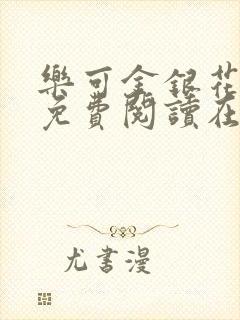 樂可金銀花
免費閱讀在
尤書漫